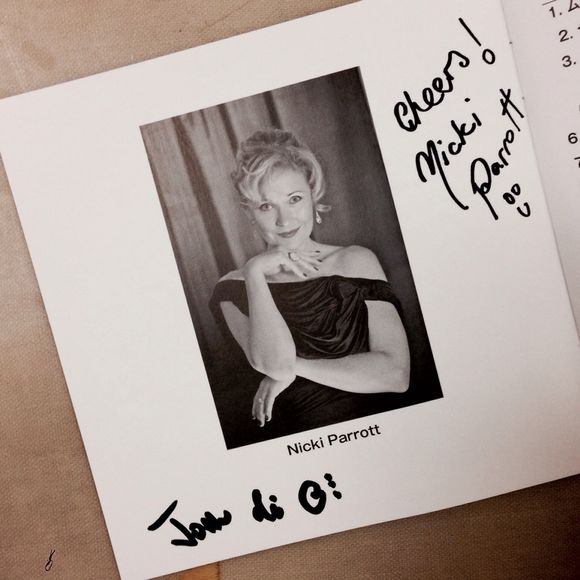 Cheers!
Nicki
Parrott
Nicki Parrott
1.
2.
3.
6